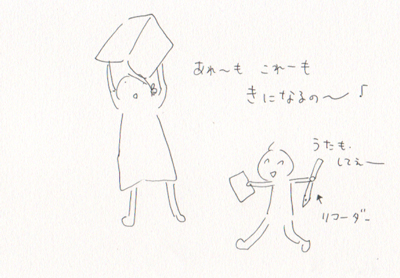 あれ〜も これーも
きになるの〜♪
うたも、
してぇー
リコーダー